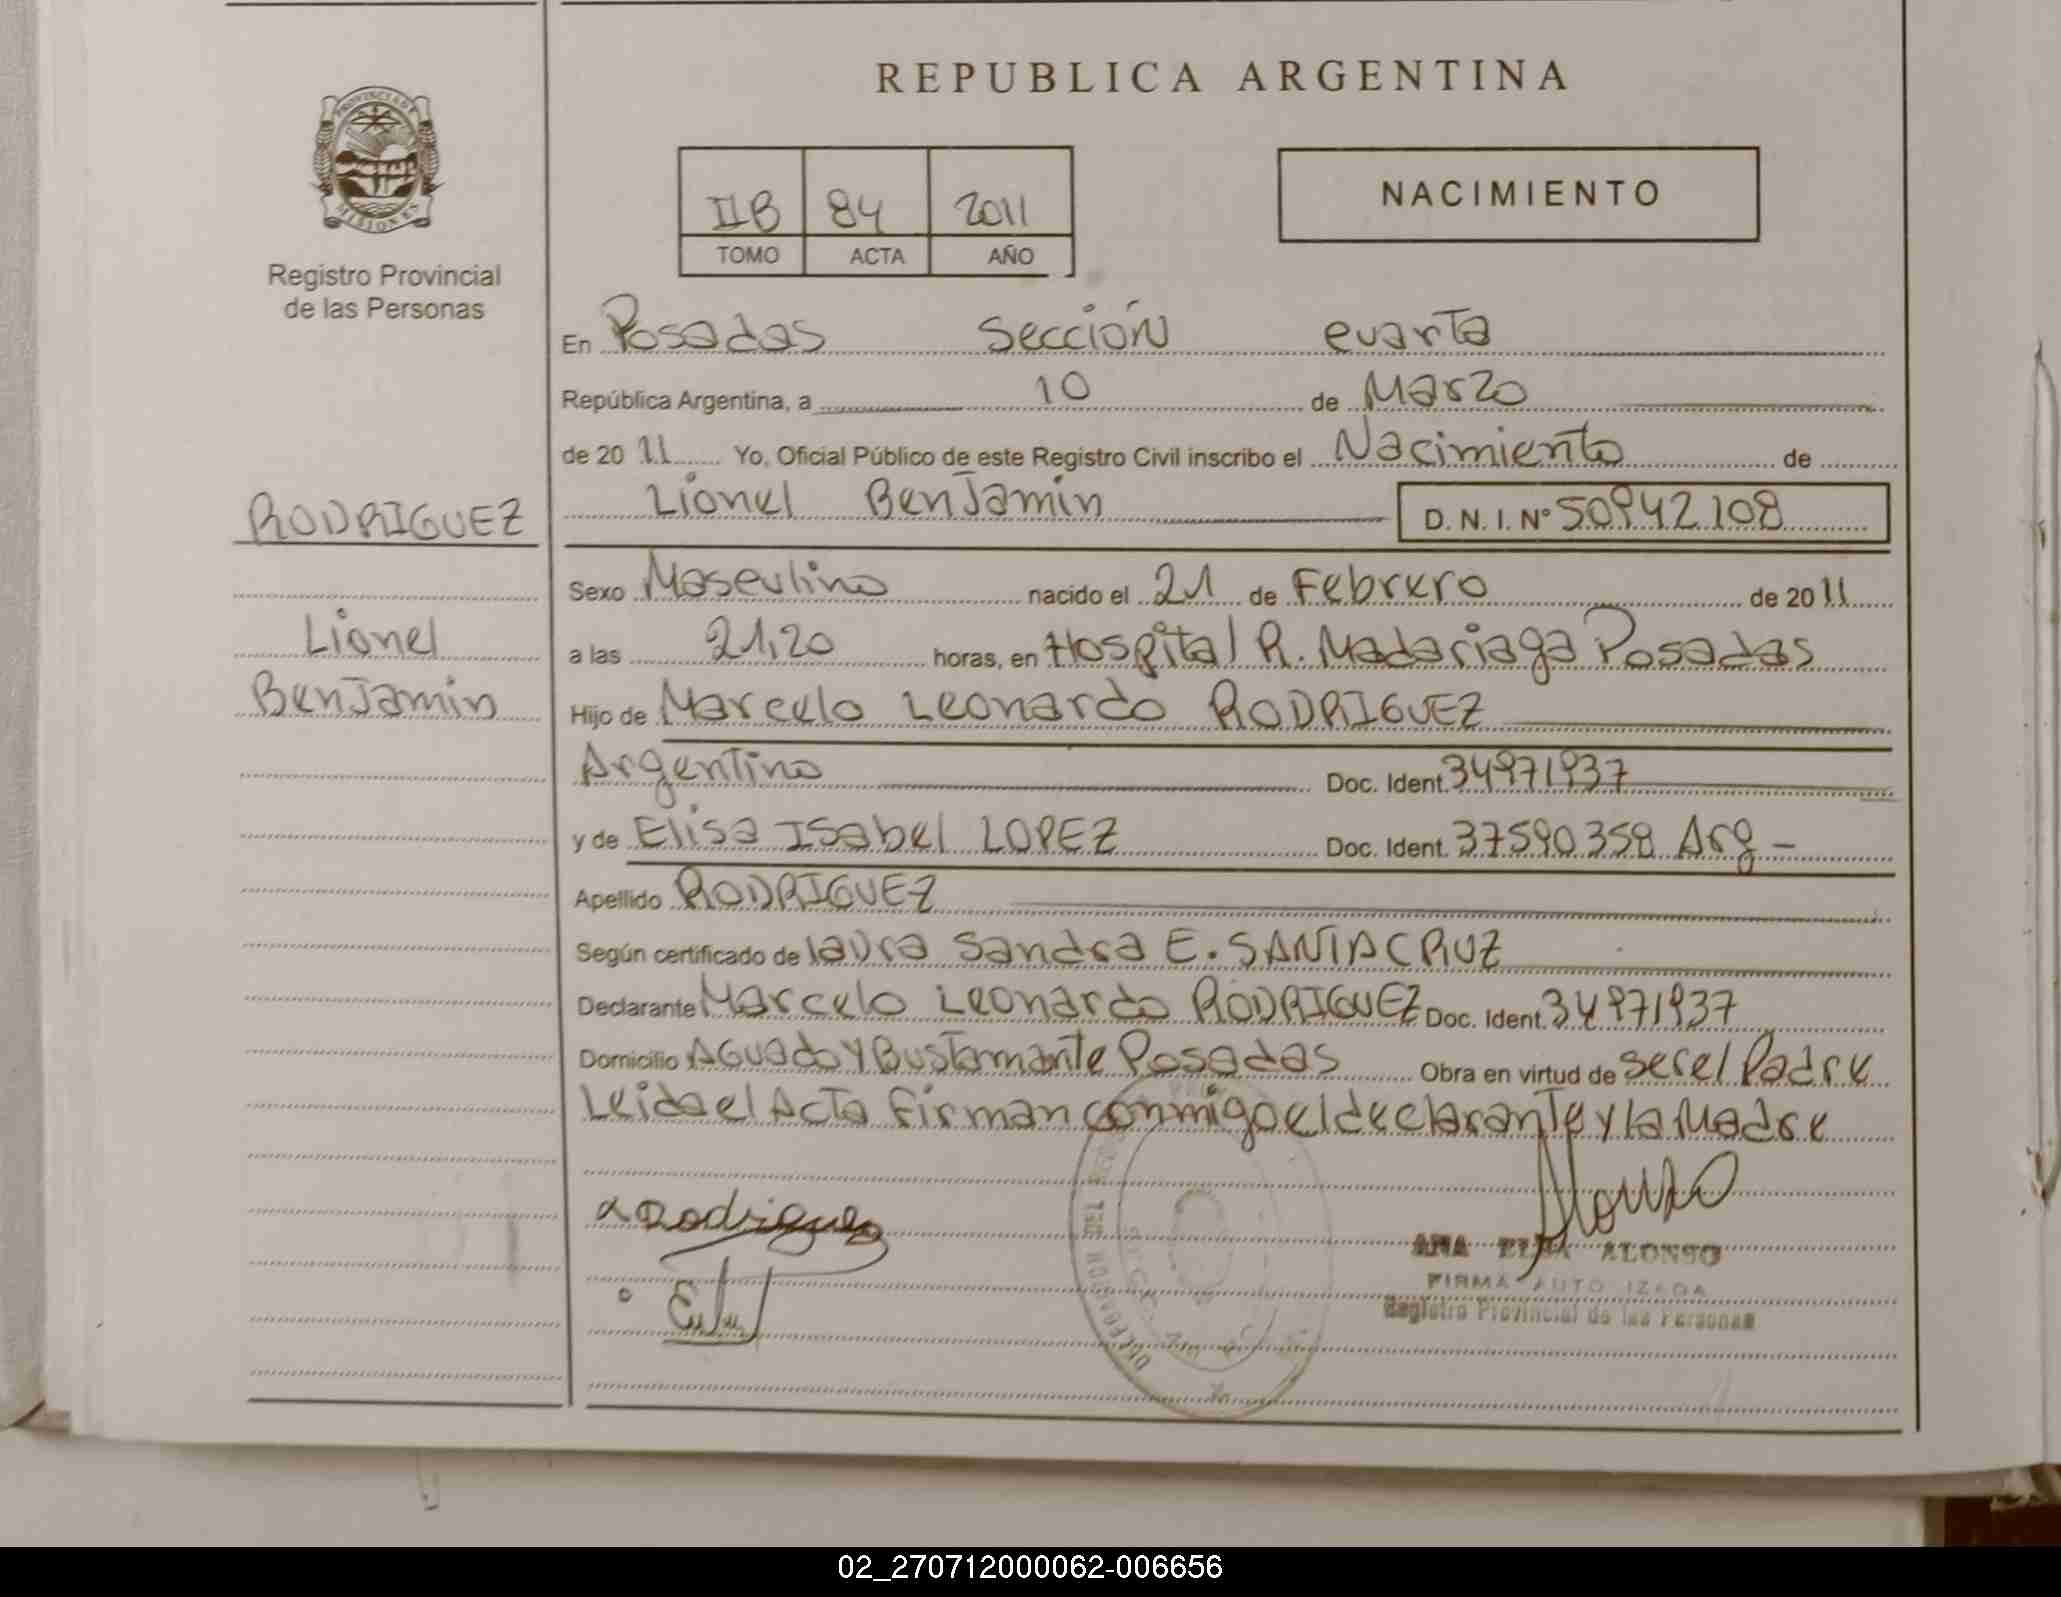 REPUBLICA ARGENTINA
PROVINCIA DE MISIONES
Registro Provincial
de las Personas
IIB 84 2011
TOMO ACTA AÑO
NACIMIENTO
En Posadas Sección cuarta
República Argentina, a 10 de Marzo
de 2011 Yo, Oficial Público de este Registro Civil inscribo el Nacimiento de
RODRIGUEZ
Lionel Benjamin D.N.I. Nº 50942108
Sexo Masculino nacido el 21 de Febrero de 2011
Lionel
a las 21,20 horas, en Hospital R. Madariaga Posadas
Benjamin
Hijo de Marcelo Leonardo RODRIGUEZ
Argentino Doc. Ident. 34971937
y de Elisa Isabel LOPEZ Doc. Ident. 37590358 Arg -
Apellido RODRIGUEZ
Según certificado de laura Sandra E. SANTA CRUZ
Declarante Marcelo Leonardo RODRIGUEZ Doc. Ident. 34971937
Domicilio Aguado y Bustamante Posadas Obra en virtud de ser el Padre
Leida el Acta Firman conmigo el declarante y la Madre
Rodriguez
ANA ALONSO
FIRMA AUTORIZADA
Registro Provincial de las Personas
02_270712000062-006656